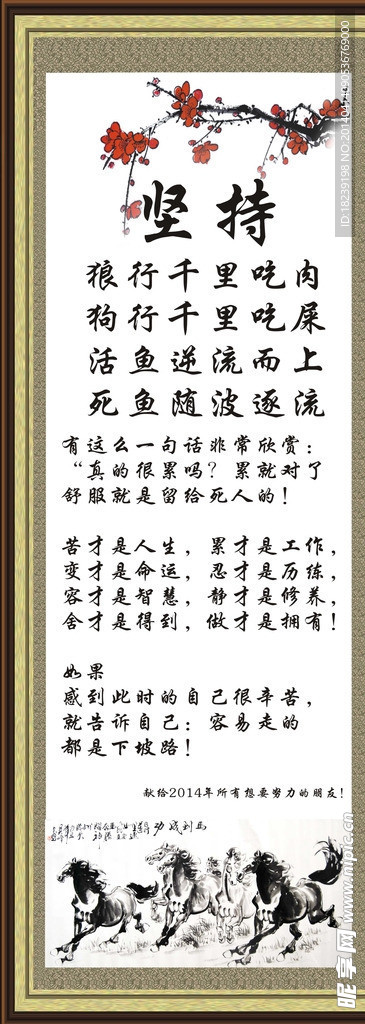 坚持
狼行千里吃肉
狗行千里吃屎
活鱼逆流而上
死鱼随波逐流
有这么一句话非常欣赏：
“真的很累吗？累就对了
舒服就是留给死人的！
苦才是人生，累才是工作，
变才是命运，忍才是历练，
容才是智慧，静才是修养，
舍才是得到，做才是拥有！
如果
感到此时的自己很辛苦，
就告诉自己：容易走的
都是下坡路！
献给2014年所有想要努力的朋友！
马到成功
昵享网 www.nipic.cn
ID:18239198 NO:20140424090536769000